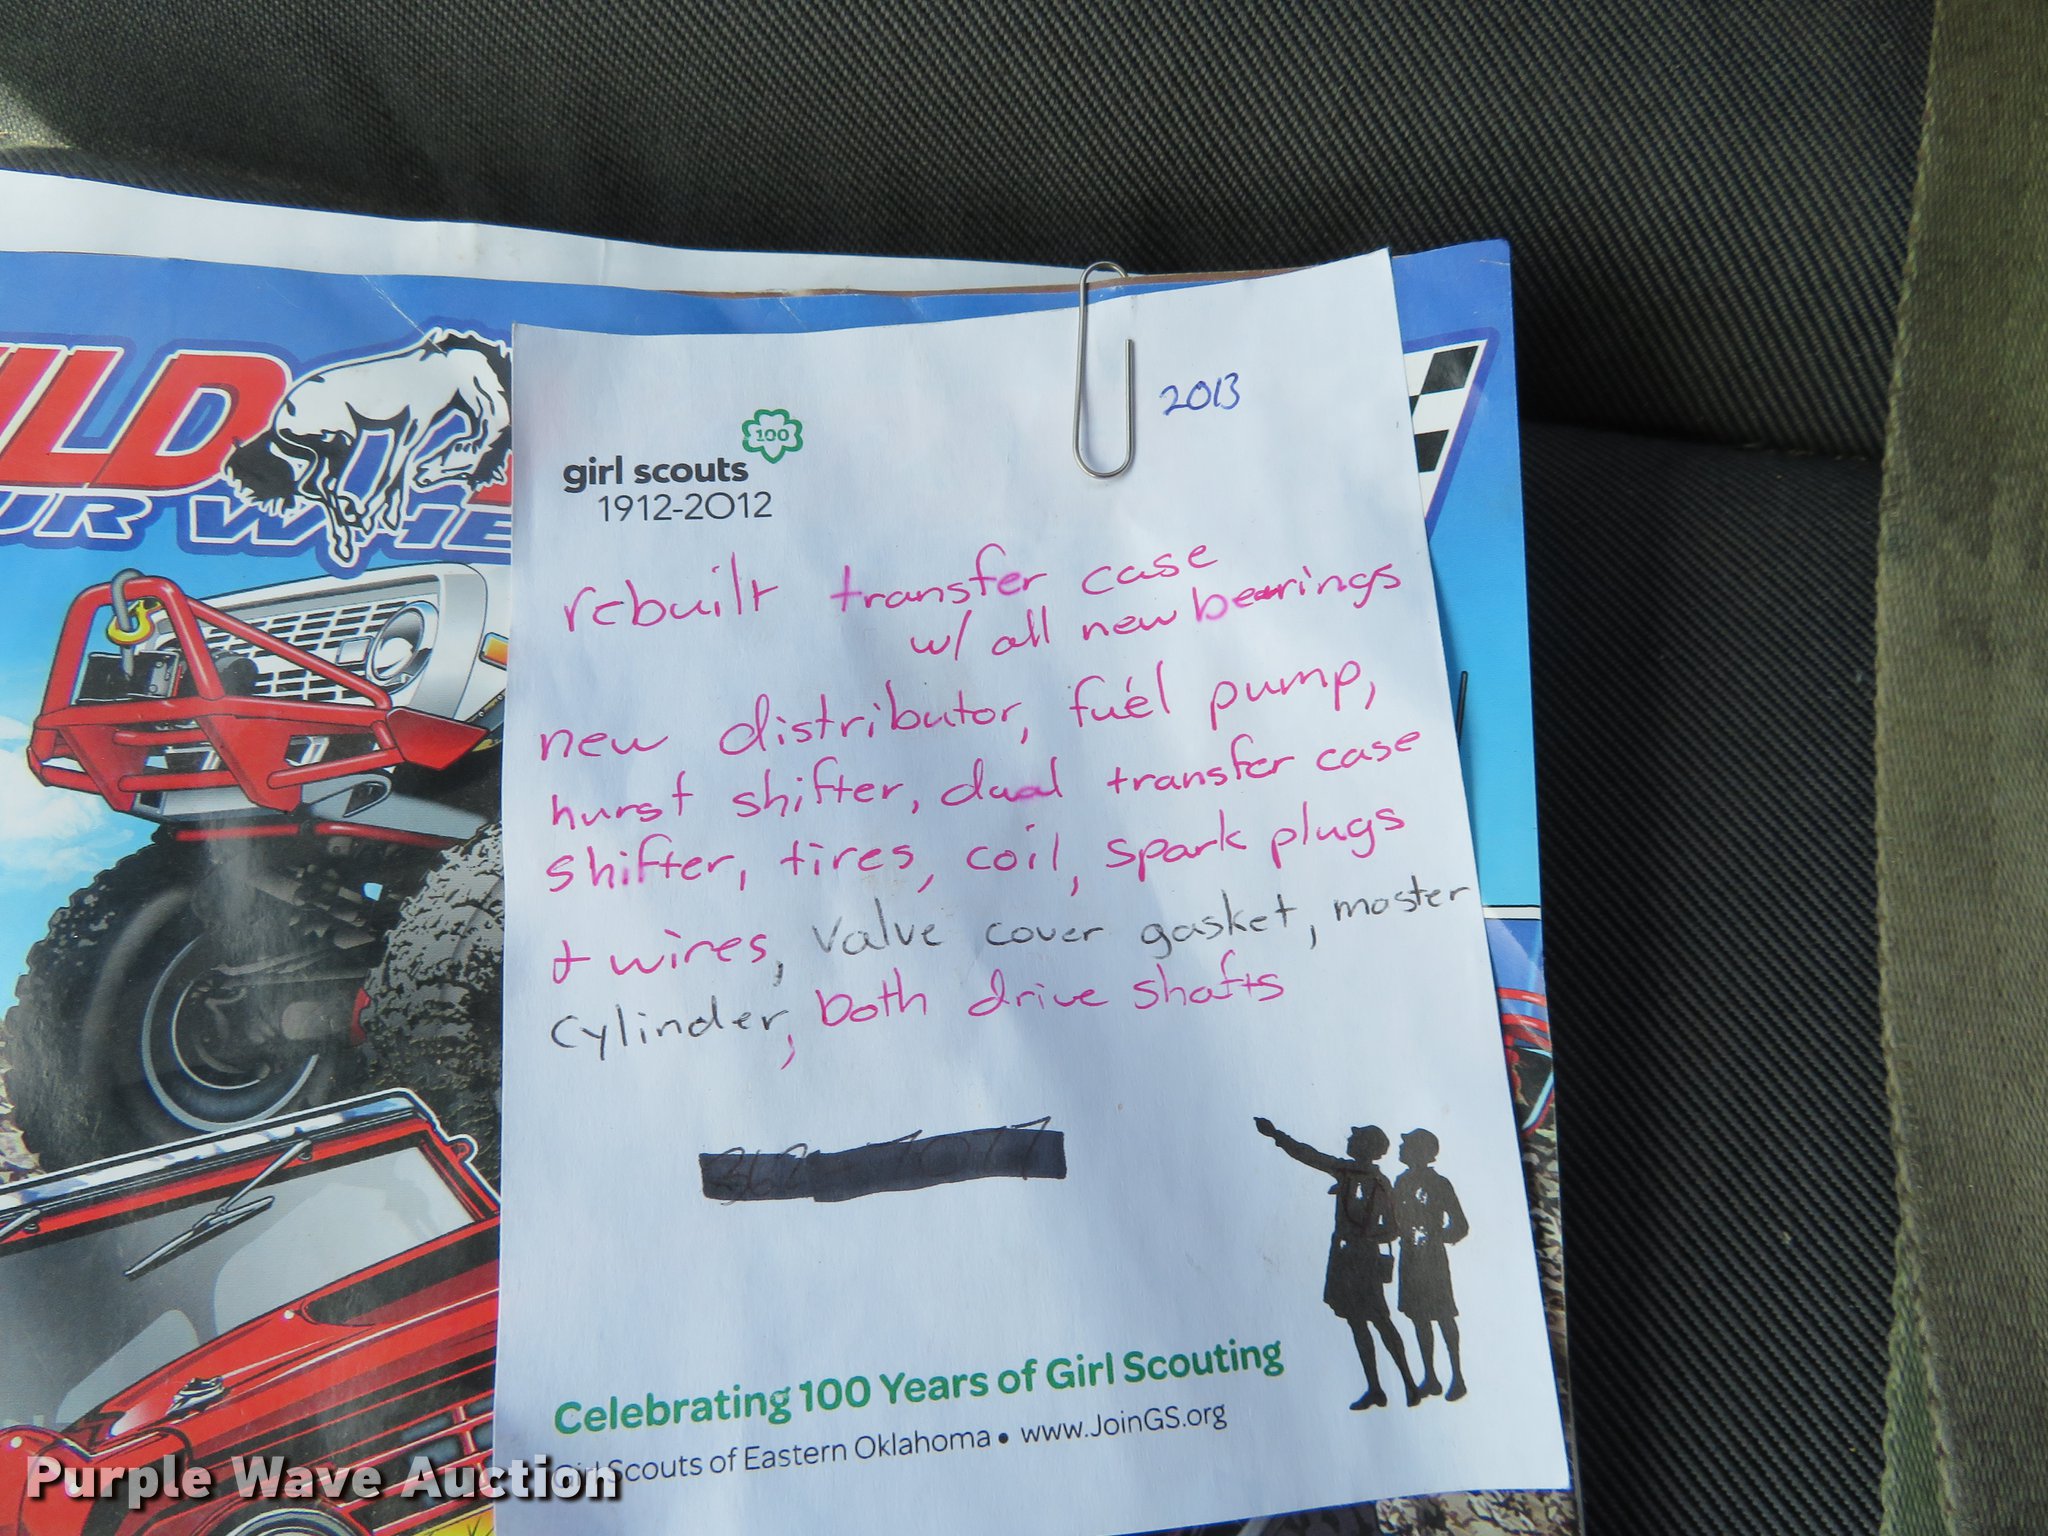 ILD
UR WHE
2013
100
girl scouts
1912-2012
rebuilt transfer case
w/ all new bearings
new distributor, fuel pump,
hurst shifter, dual transfer case
shifter, tires, coil, spark plugs
& wires, valve cover gasket, master
cylinder, both drive shafts
Celebrating 100 Years of Girl Scouting
Girl Scouts of Eastern Oklahoma • www.JoinGS.org
Purple Wave Auction